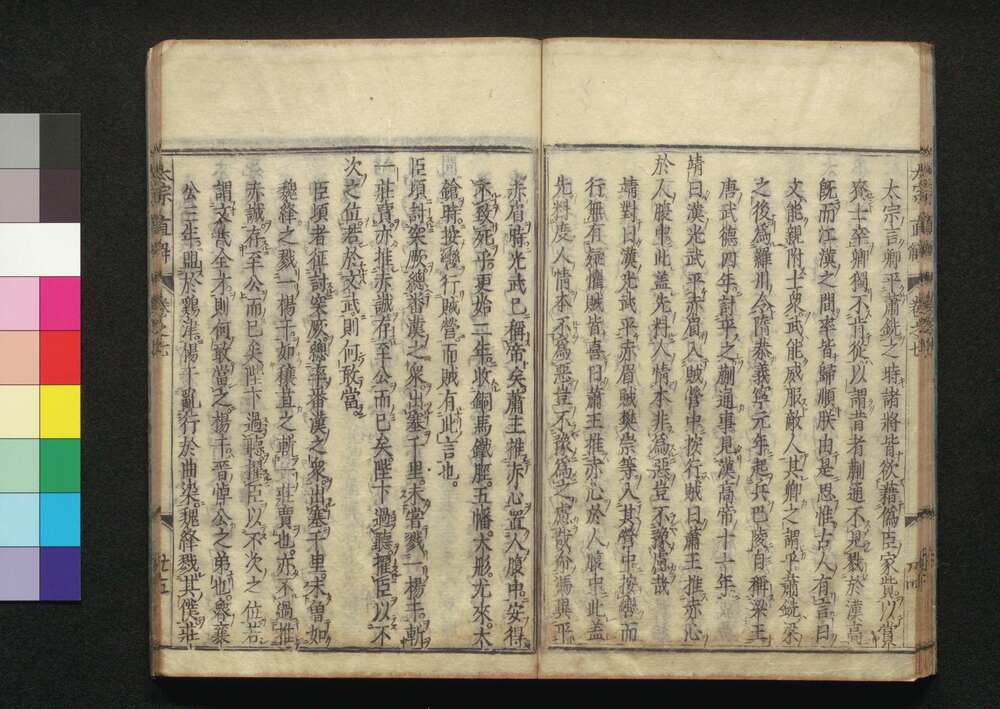 太宗言卿平蕭銑之時諸將皆欲藉爲臣家貲以賞
士卒卿獨不肯從以謂昔者蒯通不見戮於漢高
既而江漢之間率皆歸順朕由是思惟古人有言曰
文能親附士衆武能威服敵人其卿之謂乎蕭銑梁
之後爲羅川令隋恭義寧元年起兵巴陵自稱梁王
唐武德四年討平之蒯通事見漢高帝十一年
靖曰漢光武平赤眉入賊營中按行賊曰蕭王推赤心
於人腹中此蓋先料人情本非爲惡豈不豫慮哉
靖對曰漢光武平赤眉賊樊崇等入其營中按轡而
行無有疑懼賊皆喜曰蕭王推赤心於人腹中此蓋
先料度人情本不爲惡豈不豫爲之慮哉馮異平
赤眉時光武已稱帝矣蕭王推赤心置人腹中安得
不致死乎更始二年收銅馬鐵脛五幡大彤尤來大
鎗時按轡行賊營而賊有此言也
臣頃討突厥總蕃漢之衆出塞千里未嘗戮一楊干斬
一莊賈亦推赤誠存至公而已矣陛下過聽擢臣以不
次之位若於文武則何敢當
臣頃者征討突厥總率蕃漢之衆出塞千里未曾如
魏絳之戮一楊干如穰苴之斬一莊賈也亦不過推
赤誠存至公而已矣陛下過聽擢臣以不次之位若
謂文武全才則何敢當之楊干晉悼公之弟也魯襄
公三年盟於鷄澤楊干亂行於曲梁魏絳戮其僕莊